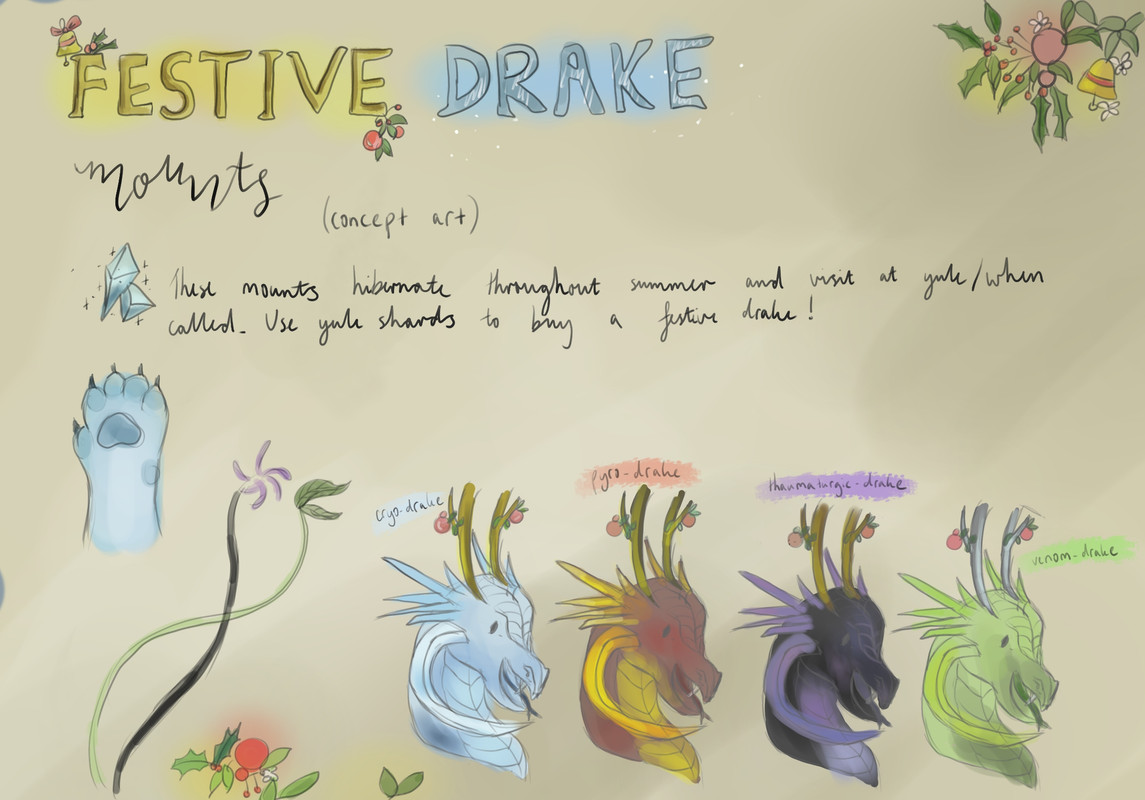 FESTIVE DRAKE
mounts
(concept art)
These mounts hibernate throughout summer and visit at yule/when
called. Use yule shards to buy a festive drake!
cryo-drake
pyro-drake
thaumaturgic-drake
venom-drake